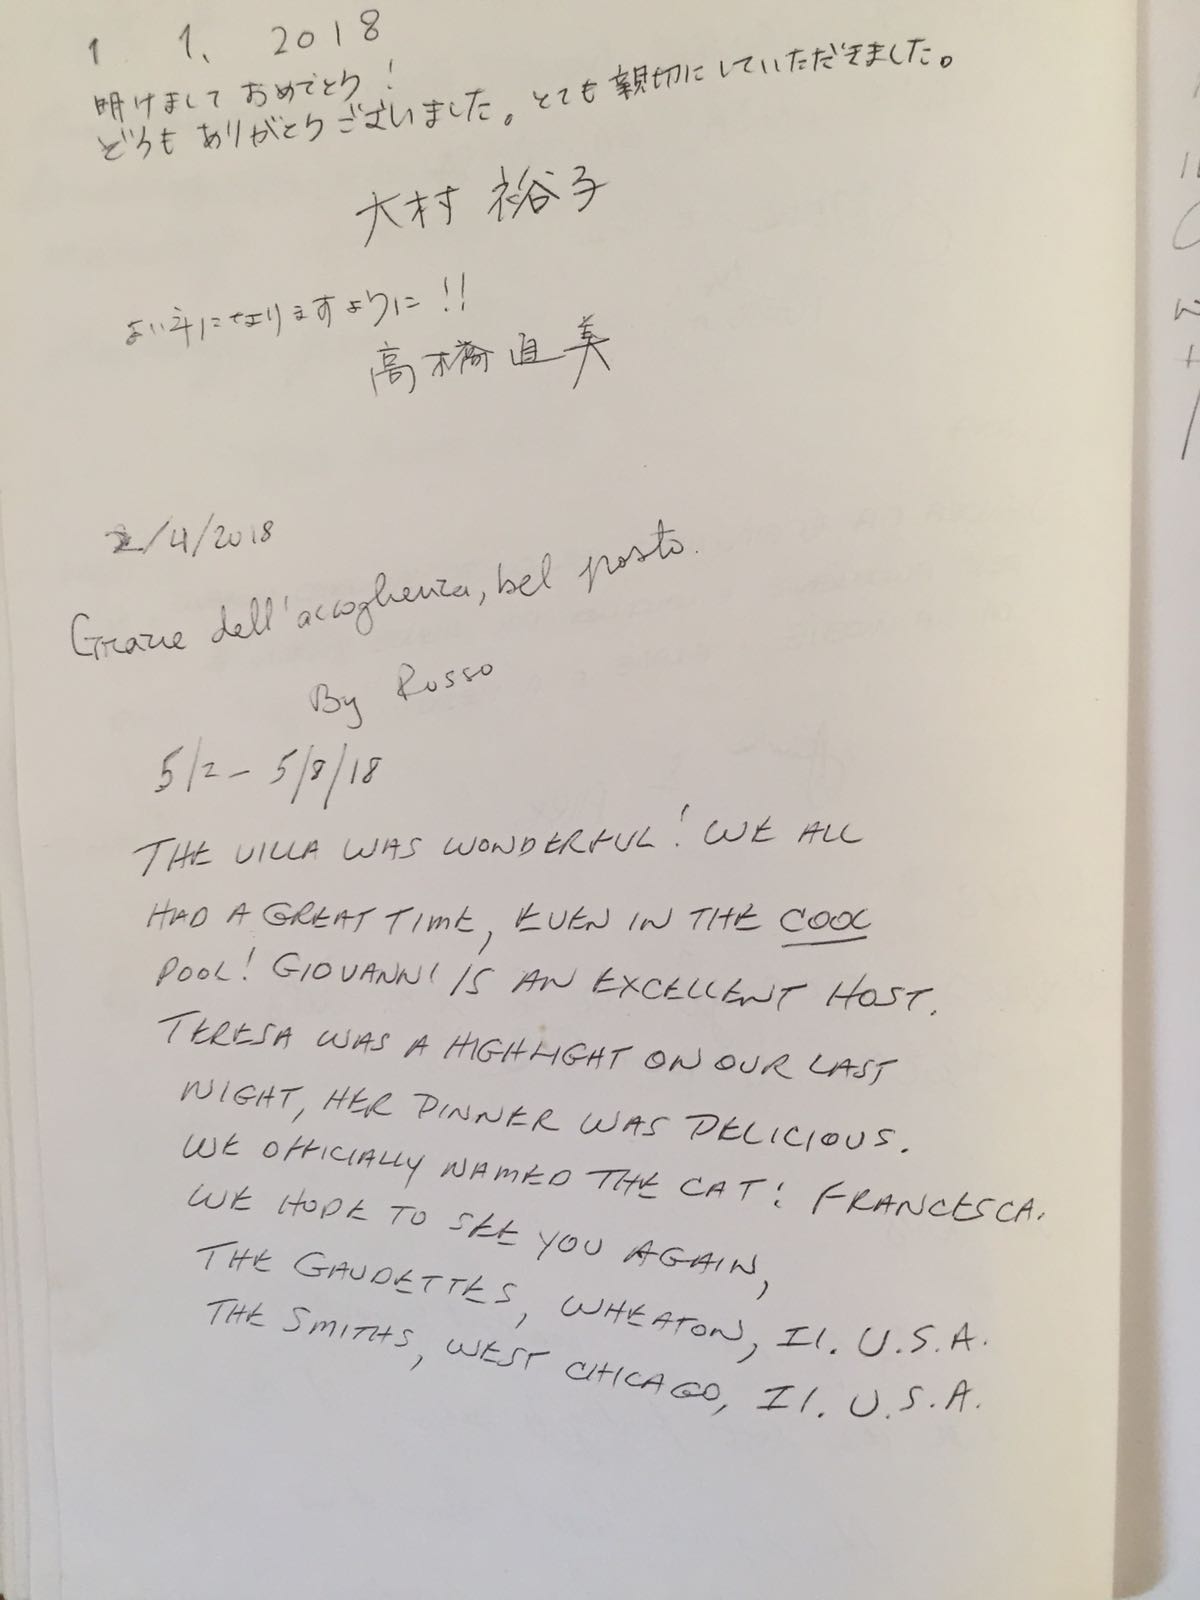 1 1. 2018
明けまして おめでとう!
どうも ありがとうございました。とても 親切にしていただきました。
大村 裕子
よい年になりますように!!
高橋 直美
2/4/2018
Grazie dell'accoglienza, bel posto.
By Rosso
5/2 - 5/8/18
THE VILLA WAS WONDERFUL! WE ALL
HAD A GREAT TIME, EVEN IN THE COOL
POOL! GIOVANNI IS AN EXCELLENT HOST.
TERESA WAS A HIGHLIGHT ON OUR LAST
NIGHT, HER DINNER WAS DELICIOUS.
WE OFFICIALLY NAMED THE CAT: FRANCESCA.
WE HOPE TO SEE YOU AGAIN,
THE GAUDETTES, WHEATON, Il. U.S.A.
THE SMITHS, WEST CHICAGO, Il. U.S.A.